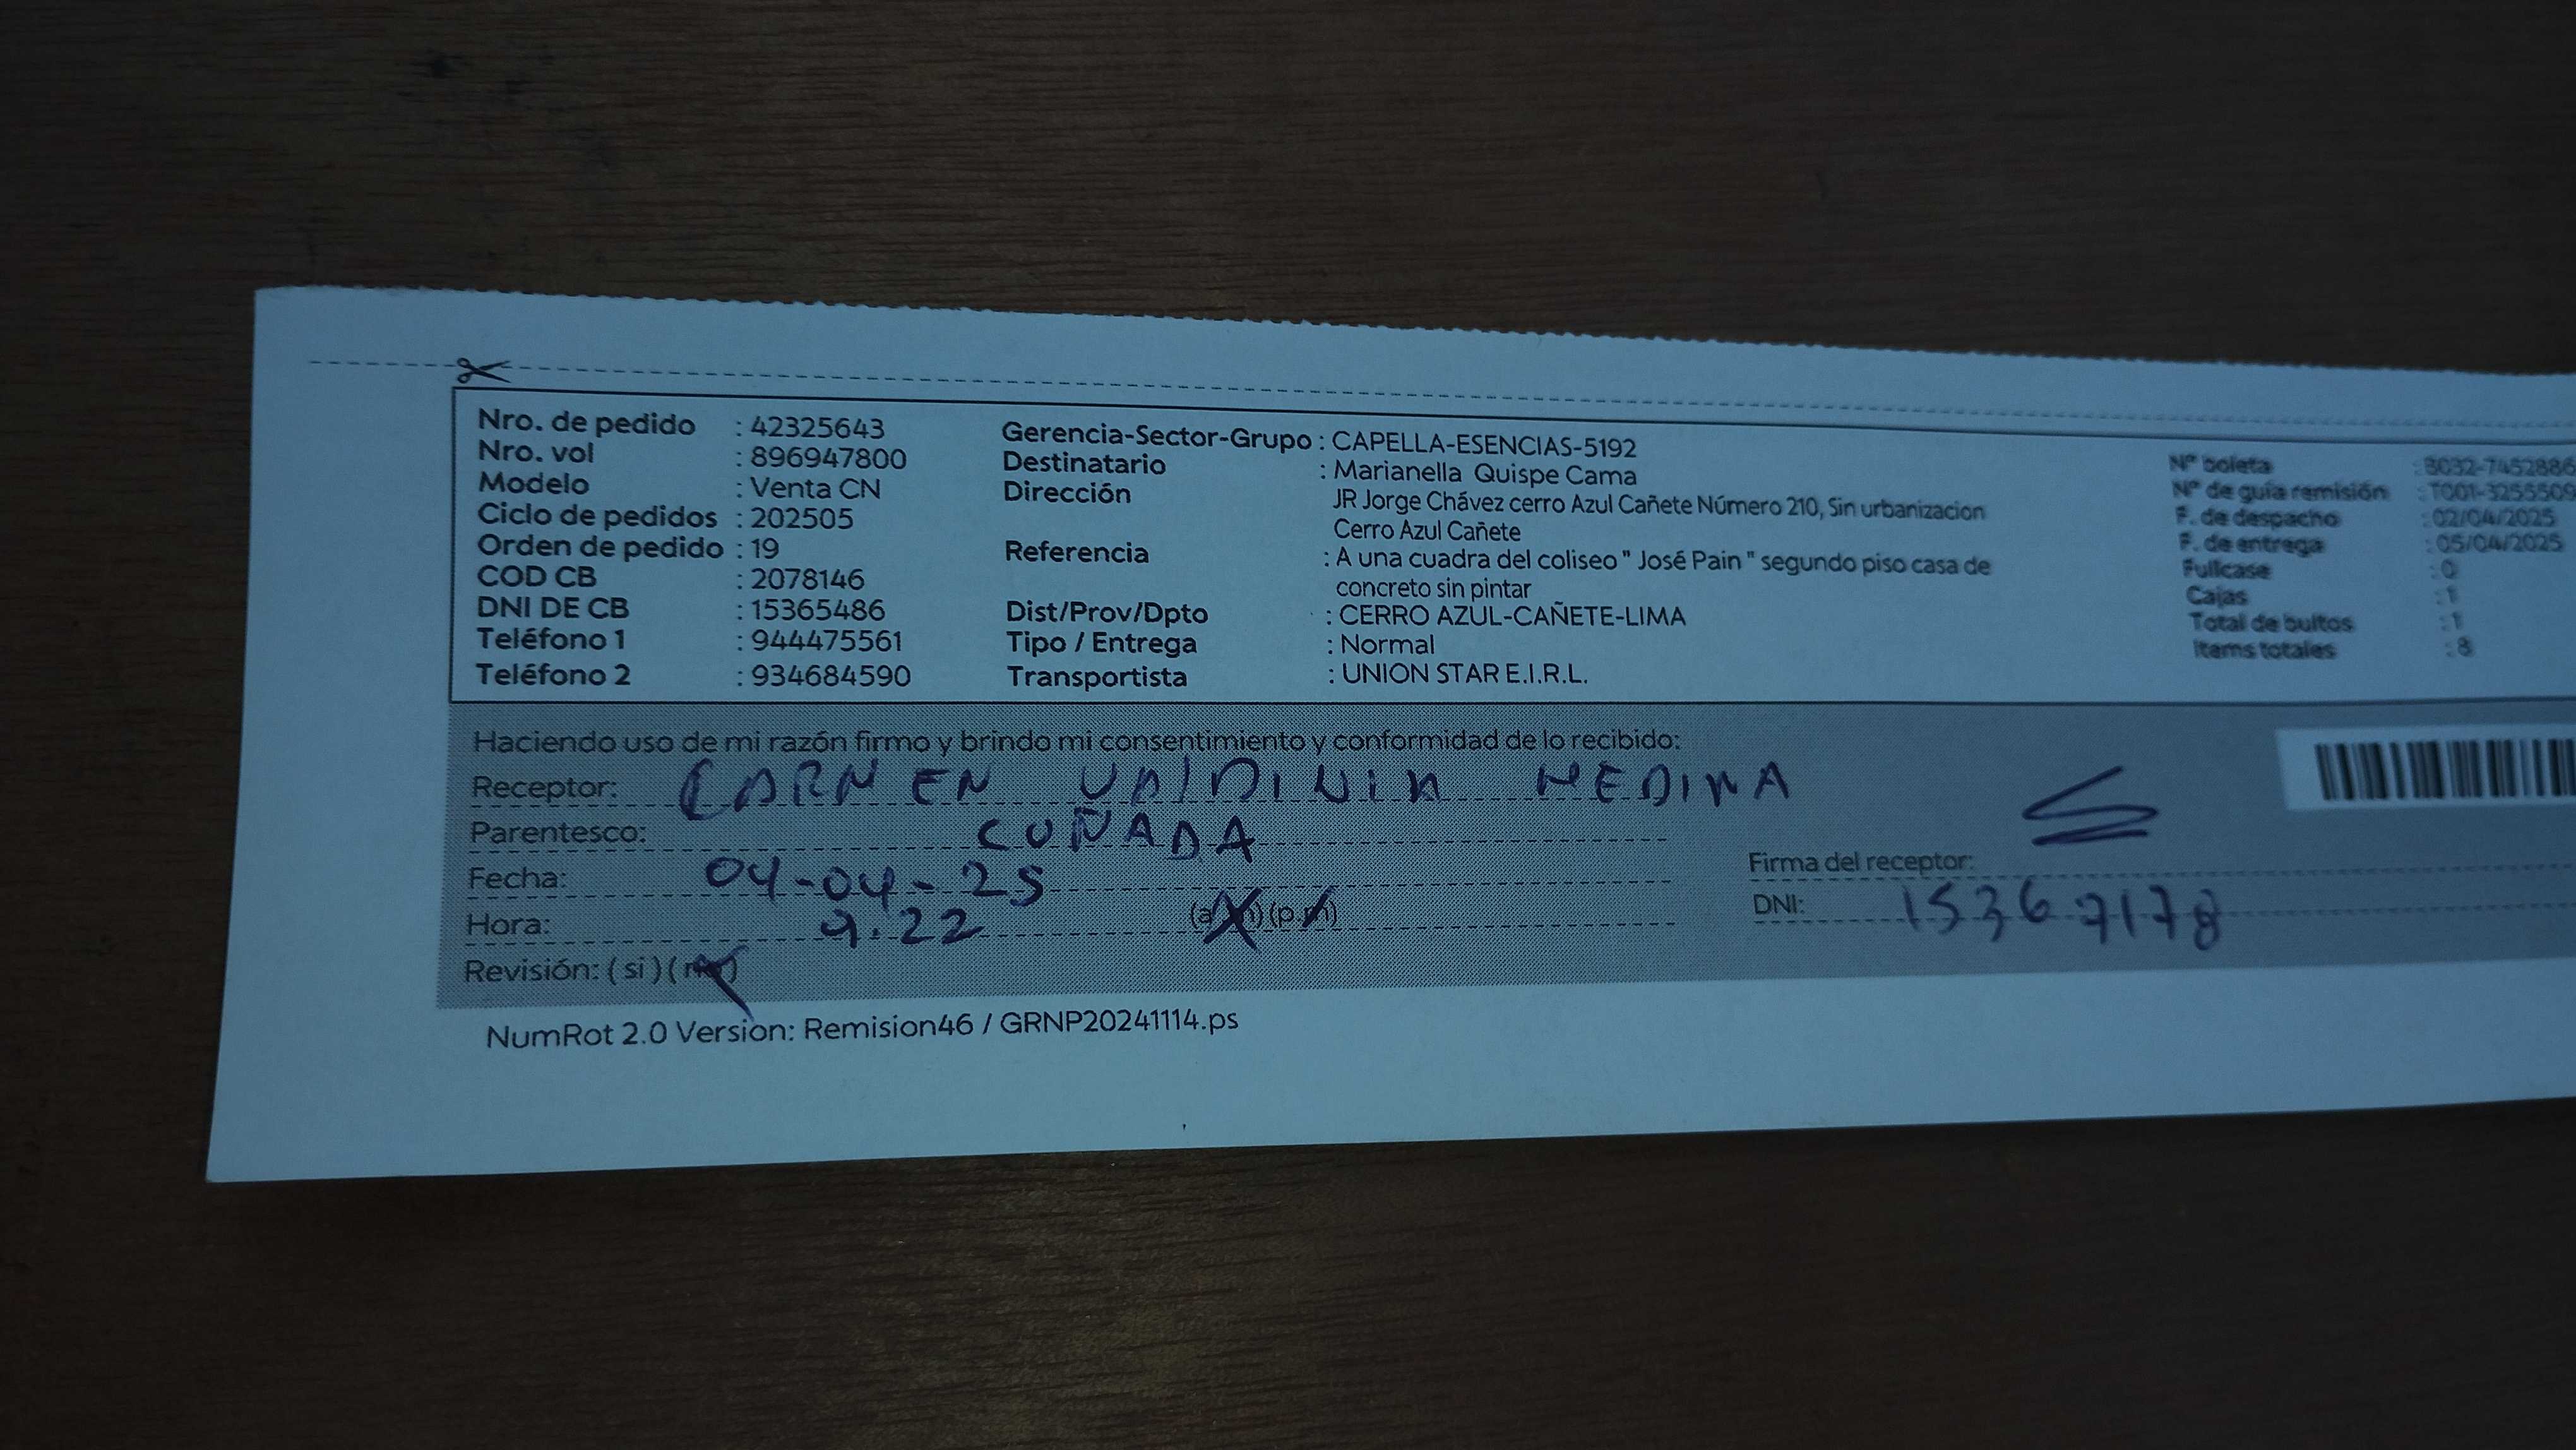 Nro. de pedido : 42325643
Nro. vol : 896947800
Modelo : Venta CN
Ciclo de pedidos : 202505
Orden de pedido : 19
COD CB : 2078146
DNI DE CB : 15365486
Teléfono 1 : 944475561
Teléfono 2 : 934684590
Gerencia-Sector-Grupo : CAPELLA-ESENCIAS-5192
Destinatario : Marianella Quispe Cama
Dirección JR Jorge Chávez cerro Azul Cañete Número 210, Sin urbanizacion
Cerro Azul Cañete
Referencia : A una cuadra del coliseo " José Pain " segundo piso casa de
concreto sin pintar
Dist/Prov/Dpto : CERRO AZUL-CAÑETE-LIMA
Tipo / Entrega : Normal
Transportista : UNION STAR E.I.R.L.
Nº boleta : B032-7452886
Nº de guía remisión : T001-3255509
F. de despacho : 02/04/2025
F. de entrega : 05/04/2025
Fullcase : 0
Cajas : 1
Total de bultos : 1
Items totales : 8
Haciendo uso de mi razón firmo y brindo mi consentimiento y conformidad de lo recibido:
Receptor: CARMEN VALDIVIA MEDINA
Parentesco: CUÑADA
Fecha: 04-04-25
Hora: 9:22 (a.m) (p.m)
Revisión: ( si ) ( no )
Firma del receptor:
DNI: 15367178
NumRot 2.0 Version: Remision46 / GRNP20241114.ps